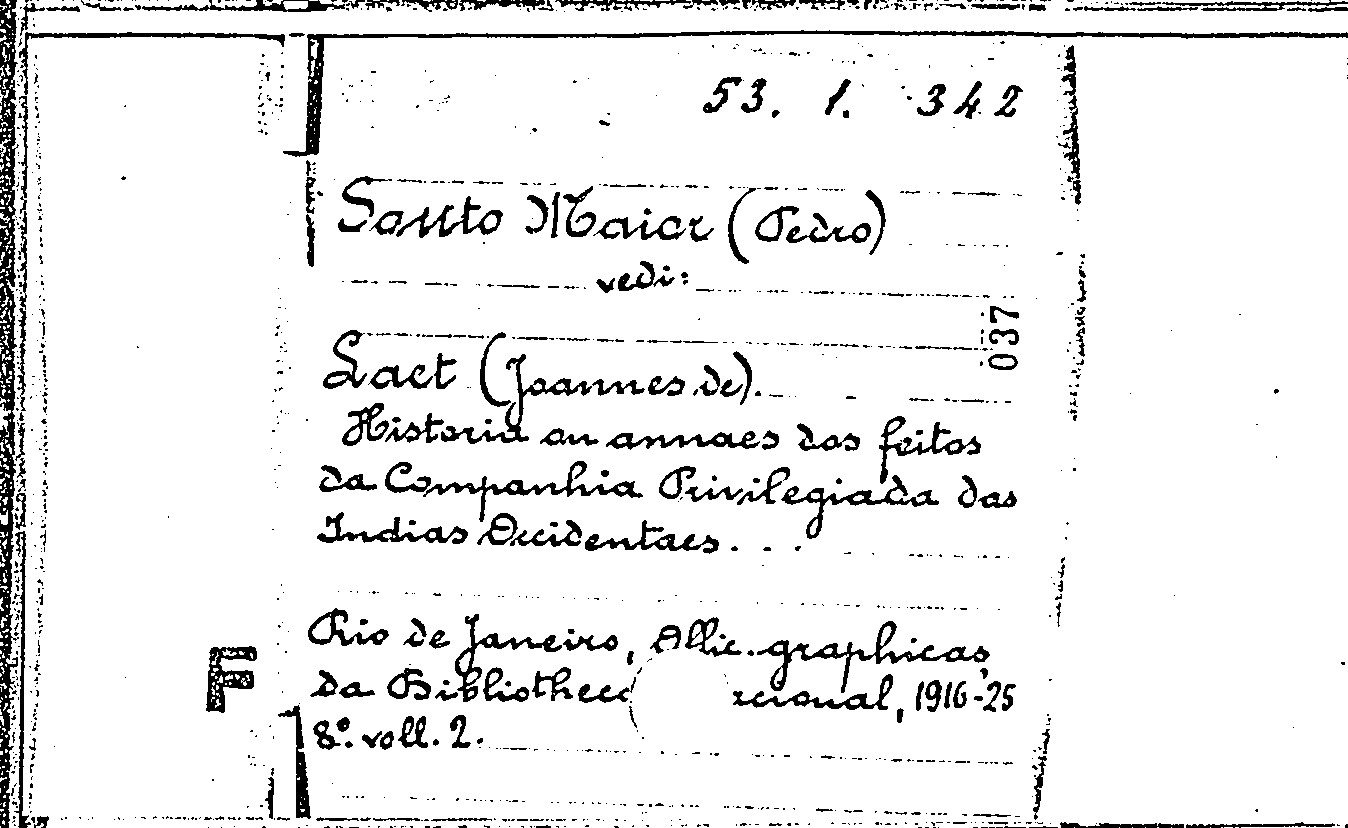 53. 1. 342
Souto Maior (Pedro)
vedi:
037
Laet (Joannes de).
Historia ou annaes dos feitos
da Companhia Privilegiada das
Indias Occidentaes...
Rio de Janeiro, Offic. graphicas
F
da Bibliotheca Nacional, 1916-25
8º. voll. 2.